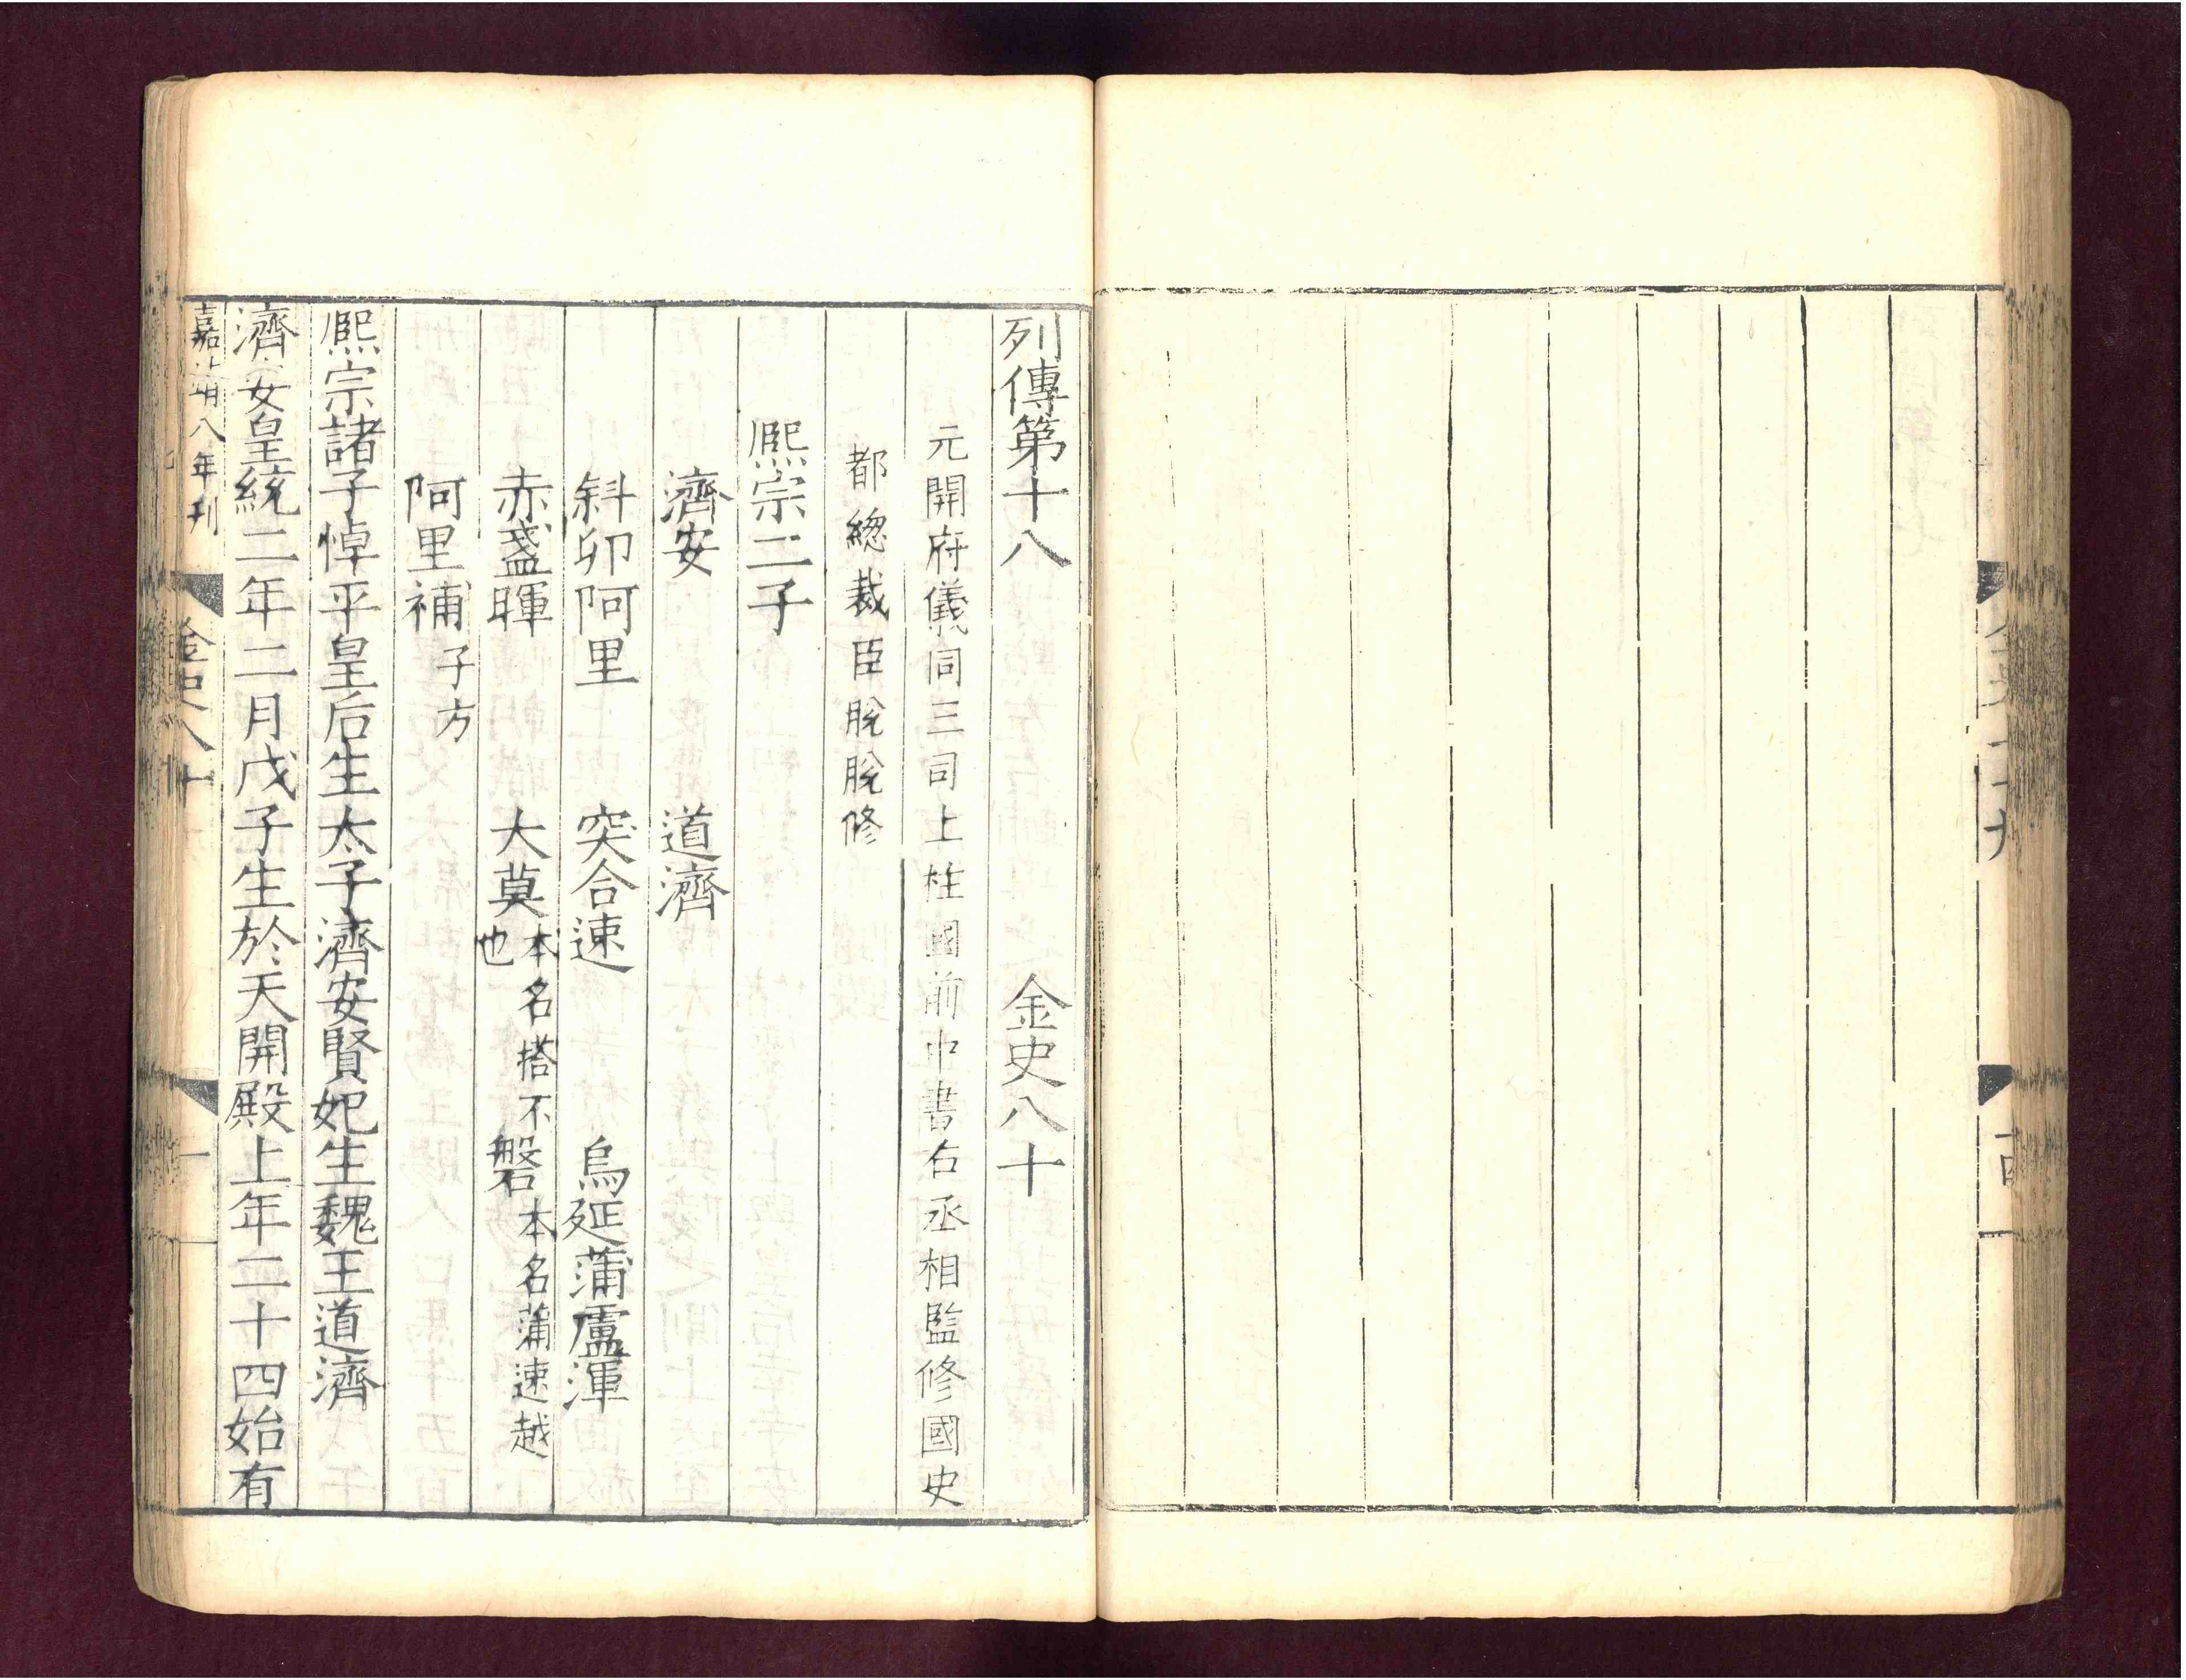 列傳第十八 金史八十
元開府儀同三司上柱國前中書右丞相監修國史
都總裁臣脫脫修
熈宗二子
濟安 道濟
斜卯阿里 突合速 烏延蒲盧渾
赤盞暉 大㚖本名撻不也 磐本名蒲速越
阿里補子方
熈宗諸子悼平皇后生太子濟安賢妃生魏王道濟
濟安皇統二年二月戊子生於天開殿上年二十四始有
嘉靖八年刊
金史八十
一